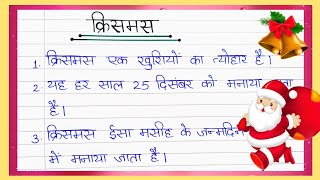 क्रिसमस
1. क्रिसमस एक खुशियों का त्योहार है।
2. यह हर साल 25 दिसंबर को मनाया जाता
है।
3. क्रिसमस ईसा मसीह के जन्मदिन
में मनाया जाता है।